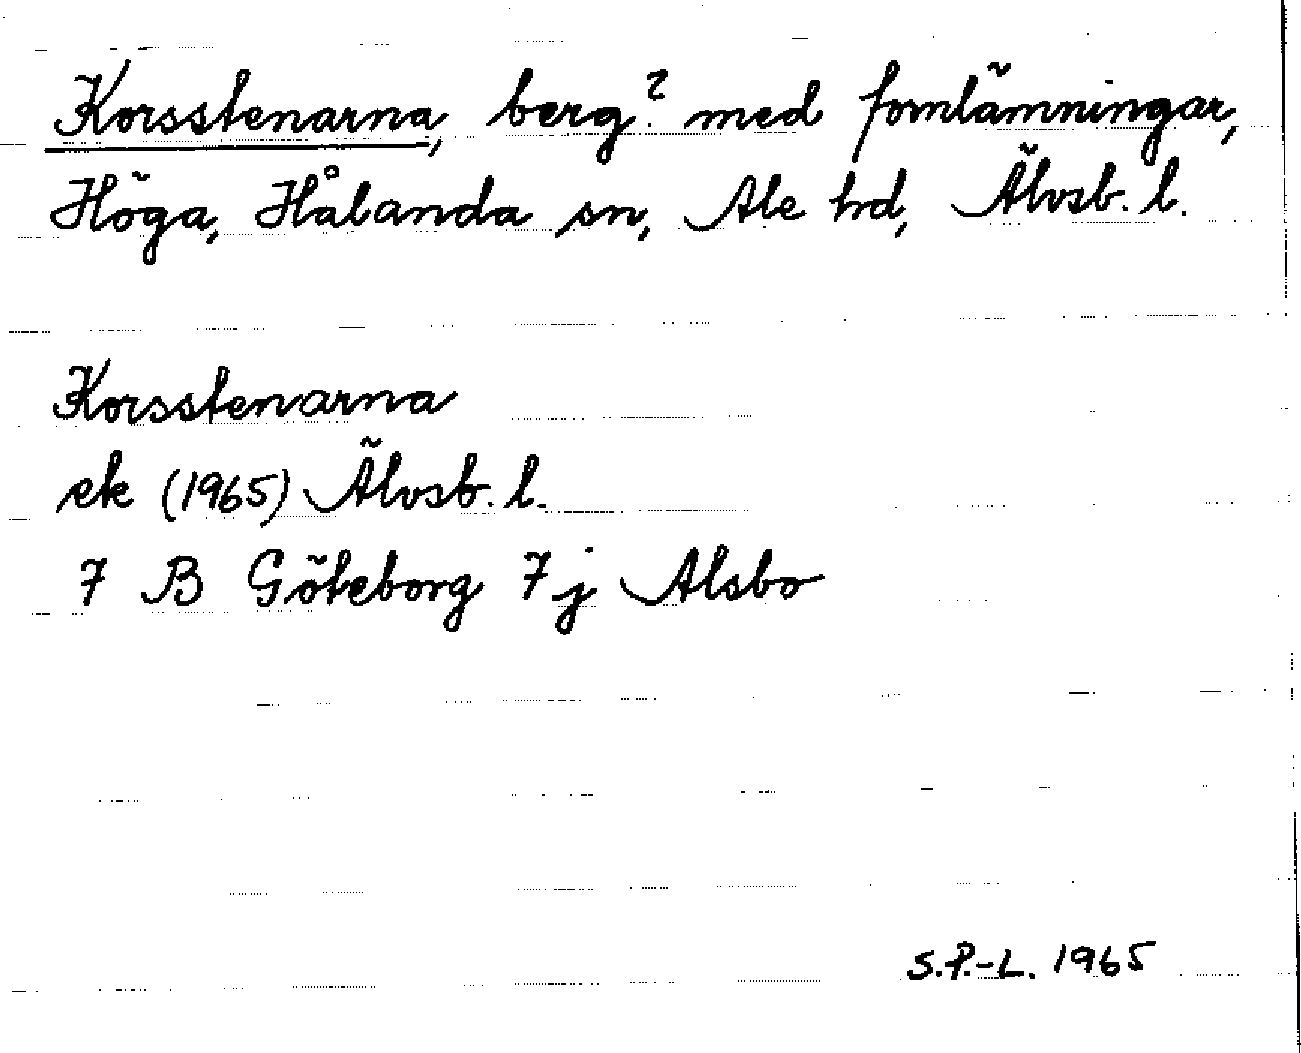 Korsstenarna, berg? med fornlämningar,
Höga, Hålanda sn, Ale hd, Älvsb. l.
Korsstenarna
ek (1965) Älvsb. l.
7 B Göteborg 7j Alsbo
S.P.-L. 1965